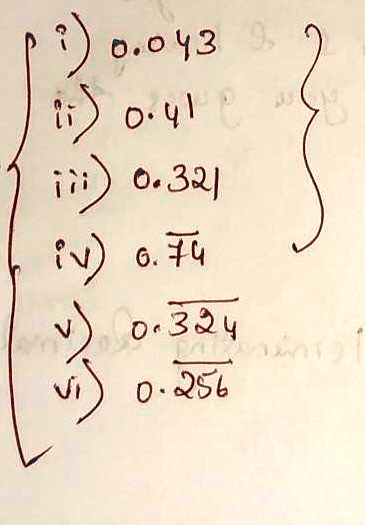 i) 0.043
ii) 0.41
iii) 0.321
iv) 0.7̅4̅
v) 0.3̅2̅4̅
vi) 0.2̅5̅6̅